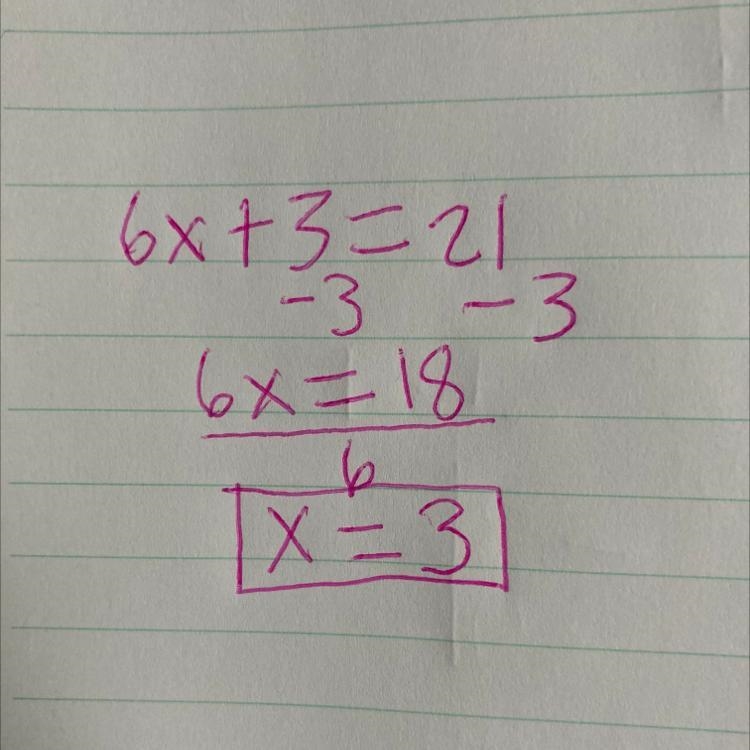 6x+3=21
-3 -3
6x=18
6
x=3